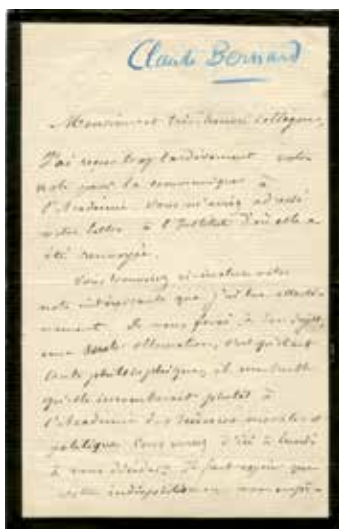 Claude Bernard
Monsieur et très honoré collègue,
J'ai reçu trop tardivement votre
note pour la communiquer à
l'Académie. Vous m'aviez adressé
votre lettre à l'Institut d'où elle a
été renvoyée.
Vous trouverez ci-incluse votre
note intéressante que j'ai lue attenti-
vement. Je vous ferai à son sujet
une seule observation, c'est qu'étant
toute philosophique, il me semble
qu'elle incomberait plutôt à
l'Académie des sciences morales et
politiques. Vous avez d'ici à lundi
à vous décider. Je fait que
votre indisposition